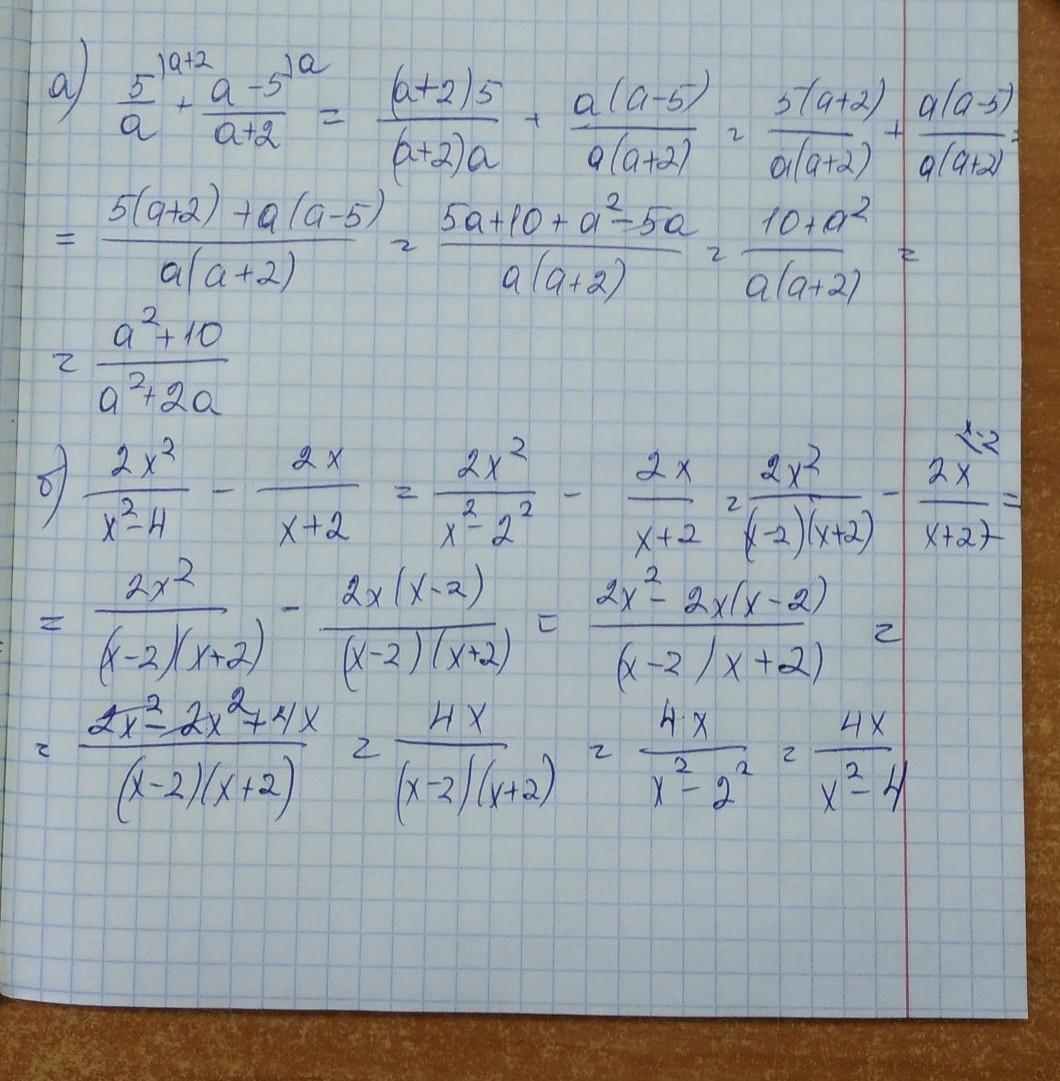 а) 5/a ⁾ᵃ⁺² + (a-5)/(a+2) ⁾ᵃ = ((a+2)5)/((a+2)a) + (a(a-5))/(a(a+2)) = (5(a+2))/(a(a+2)) + (a(a-5))/(a(a+2)) =
= (5(a+2)+a(a-5))/(a(a+2)) = (5a+10+a²-5a)/(a(a+2)) = (10+a²)/(a(a+2)) =
= (a²+10)/(a²+2a)
б) 2x²/(x²-4) - 2x/(x+2) = 2x²/(x²-2²) - 2x/(x+2) = 2x²/((x-2)(x+2)) - 2x/(x+2) ⁽ˣ⁻² =
= 2x²/((x-2)(x+2)) - (2x(x-2))/((x-2)(x+2)) = (2x²-2x(x-2))/((x-2)(x+2)) =
= (2x²-2x²+4x)/((x-2)(x+2)) = 4x/((x-2)(x+2)) = 4x/(x²-2²) = 4x/(x²-4)